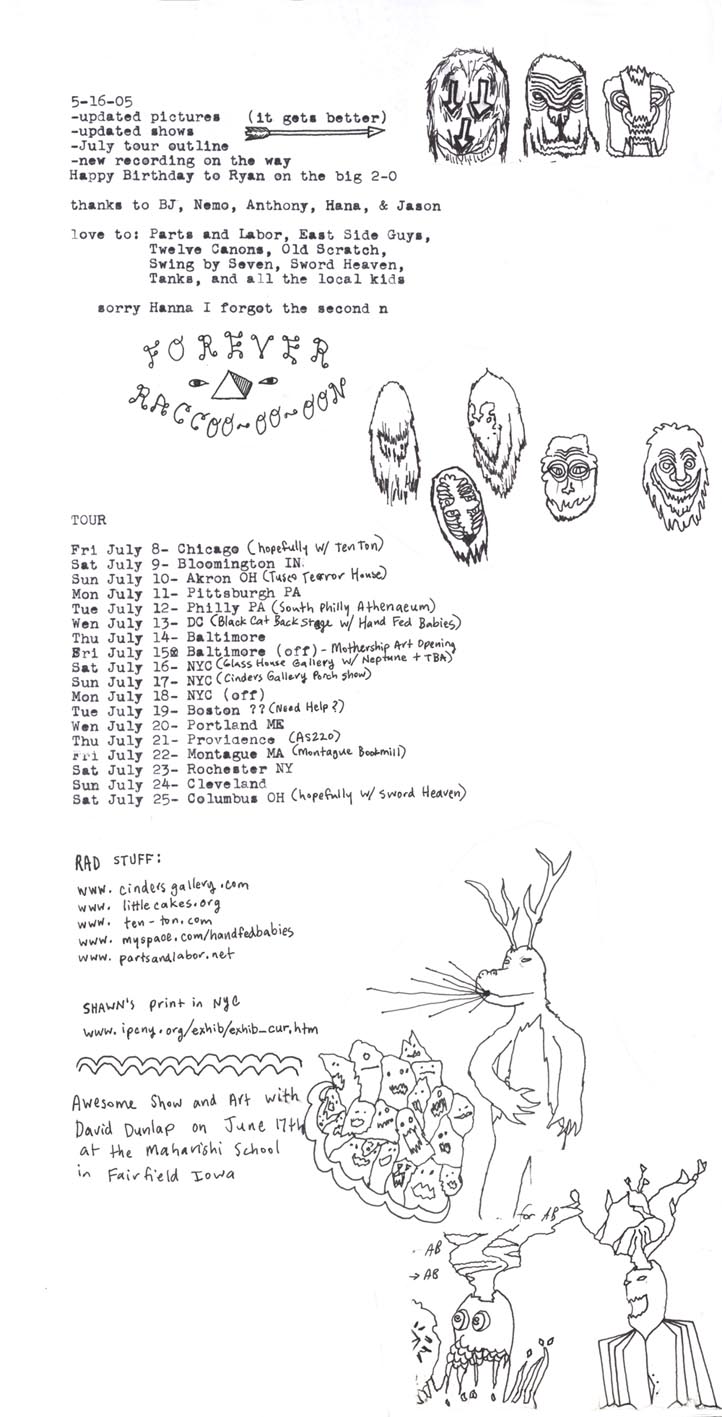 5-16-05
-updated pictures (it gets better)
-updated shows
-July tour outline
-new recording on the way
Happy Birthday to Ryan on the big 2-0
thanks to BJ, Nemo, Anthony, Hana, & Jason
love to: Parts and Labor, East Side Guys,
Twelve Canons, Old Scratch,
Swing by Seven, Sword Heaven,
Tanks, and all the local kids
sorry Hanna I forgot the second n
FOREVER
RACCOO~OO~OON
TOUR
Fri July 8- Chicago (hopefully w/ Ten Ton)
Sat July 9- Bloomington IN.
Sun July 10- Akron OH (Tusco Terror House)
Mon July 11- Pittsburgh PA
Tue July 12- Philly PA (South Philly Athenaeum)
Wen July 13- DC (Black Cat Back Stage w/ Hand Fed Babies)
Thu July 14- Baltimore
Fri July 15- Baltimore (off) - Mothership Art Opening
Sat July 16- NYC (Glass House Gallery w/ Neptune + TBA)
Sun July 17- NYC (Cinders Gallery Porch show)
Mon July 18- NYC (off)
Tue July 19- Boston ?? (Need Help?)
Wen July 20- Portland ME
Thu July 21- Providence (AS220)
Fri July 22- Montague MA (Montague Bookmill)
Sat July 23- Rochester NY
Sun July 24- Cleveland
Sat July 25- Columbus OH (hopefully w/ Sword Heaven)
RAD STUFF:
www. cinders gallery .com
www. littlecakes.org
www. ten-ton.com
www. myspace.com/handfedbabies
www. partsandlabor.net
SHAWN'S print in NYC
www. ipcny.org/exhib/exhib_cur.htm
Awesome Show and Art with
David Dunlap on June 17th
at the Maharishi School
in Fairfield Iowa
for AB
AB
→ AB